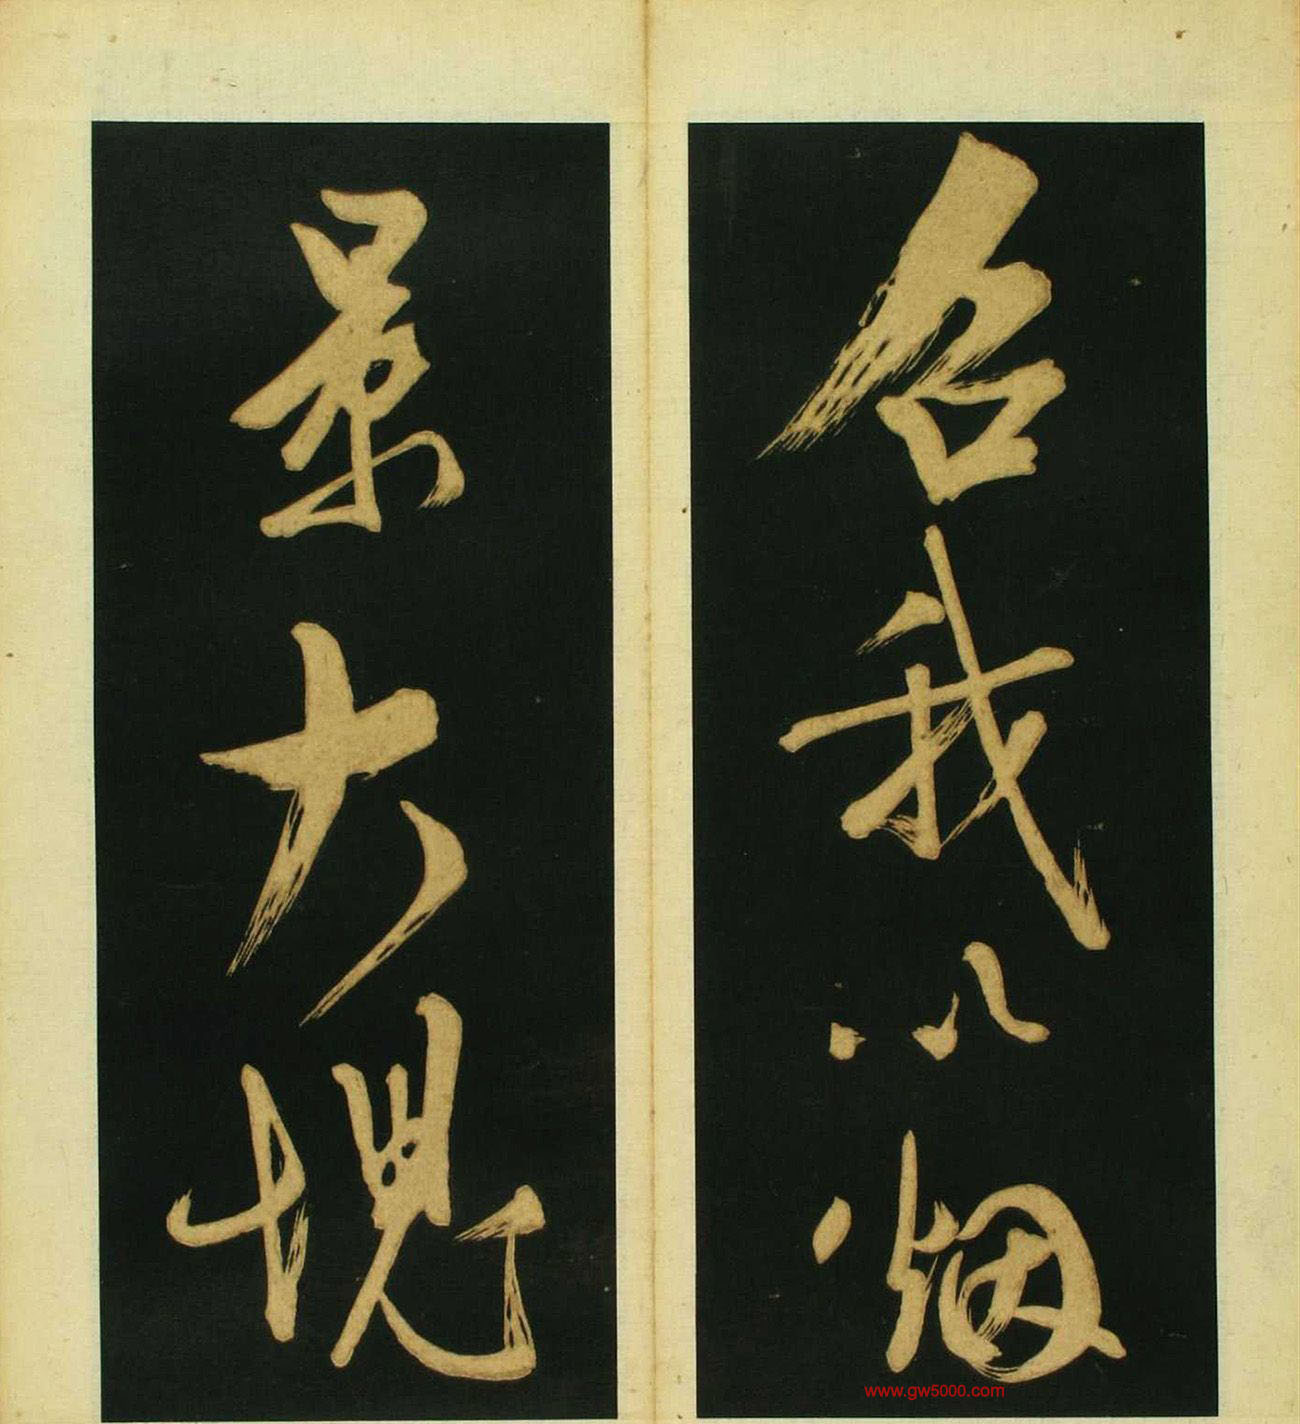 召我以烟
景大塊
www.gw5000.com